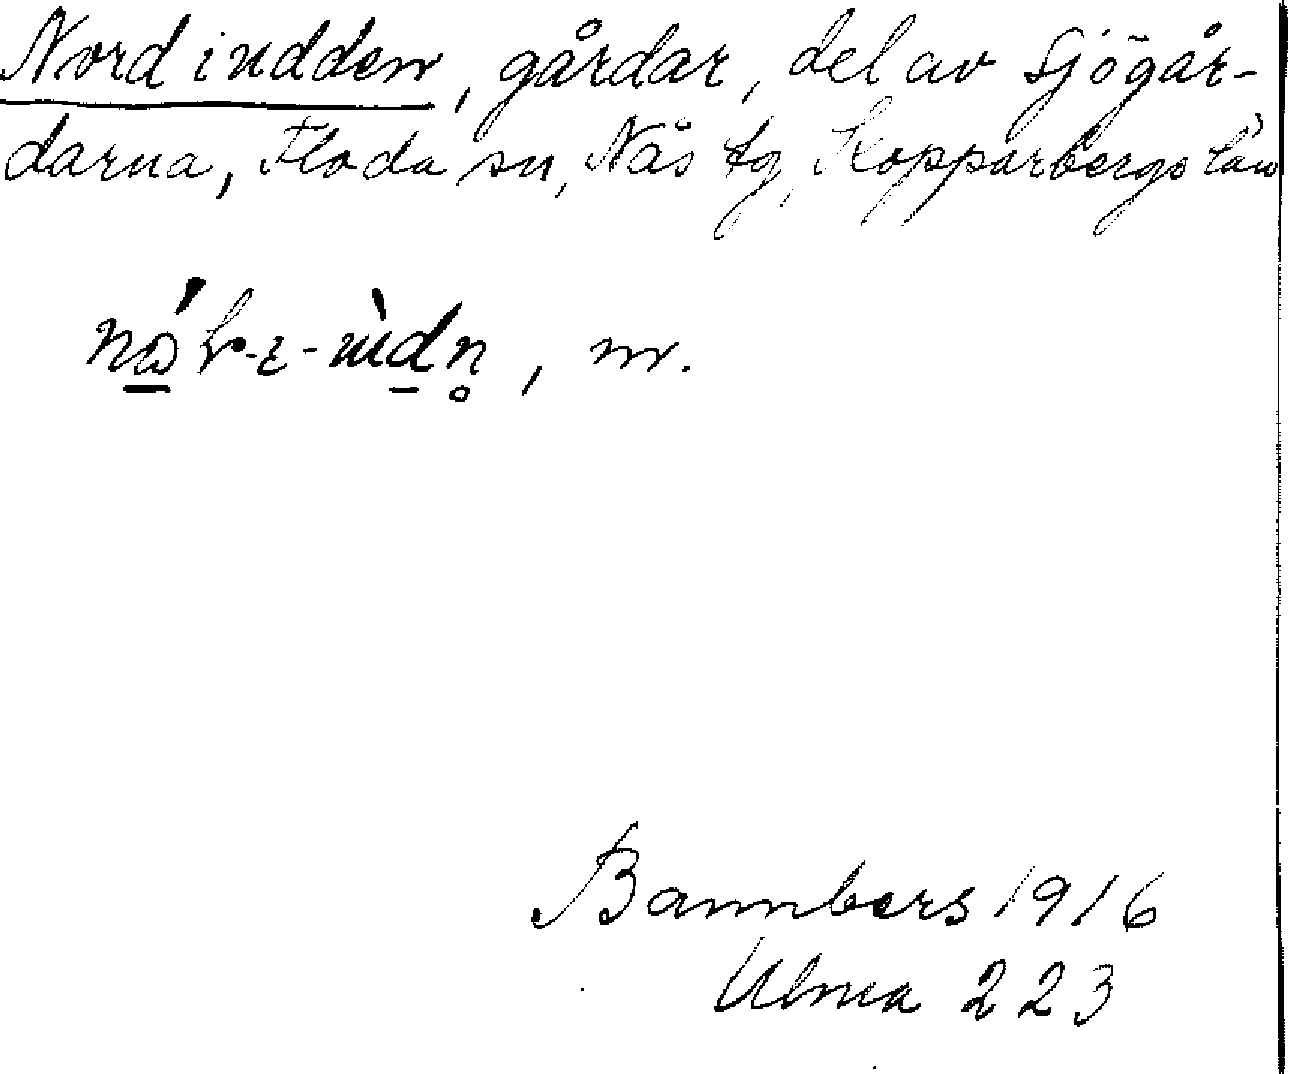 Nordindden, gårdar, del av Sjögår-
darna, Floda sn, Nås tg, Kopparbergs län
m.
Bannbers 1916
Ulma 223